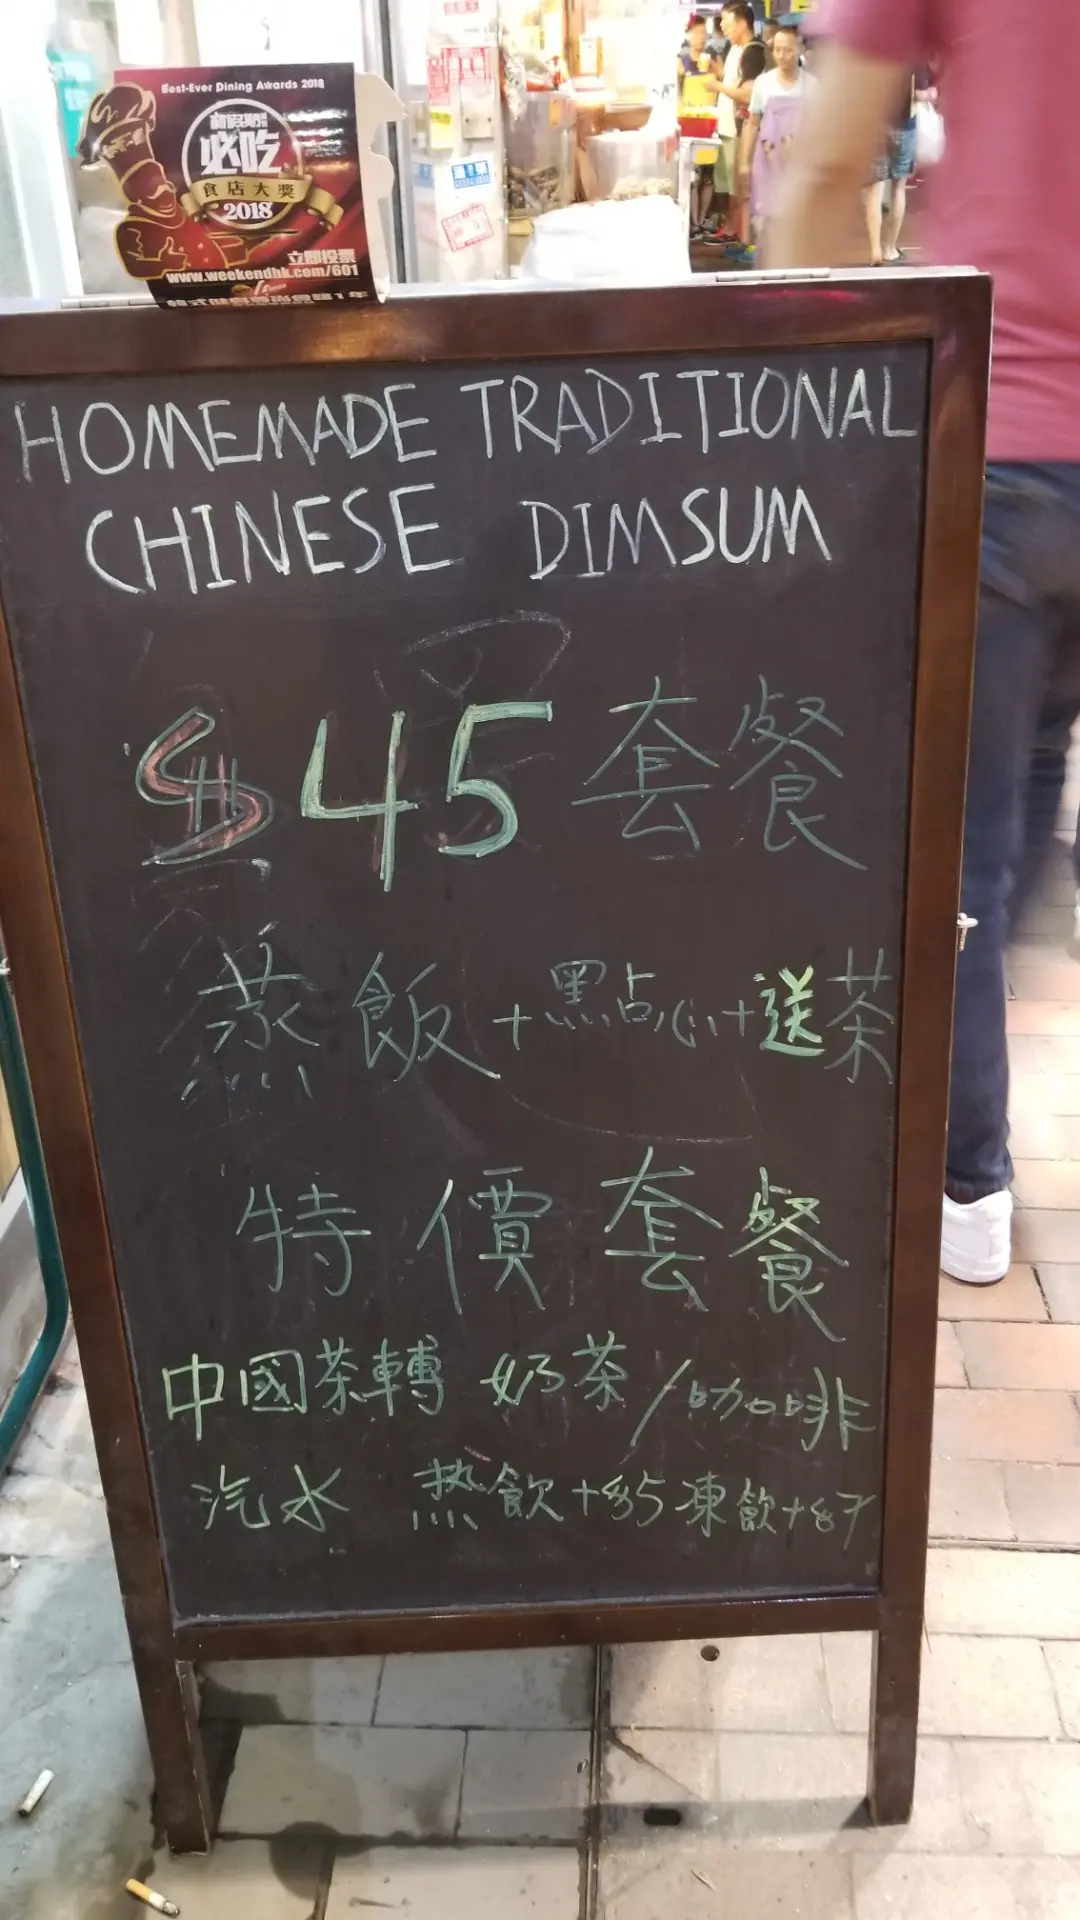 Best-Ever Dining Awards 2018
必吃
食店大獎
2018
立即投票
www.weekendhk.com/601
HOMEMADE TRADITIONAL
CHINESE DIMSUM
$45套餐
蒸飯+點心+送茶
特價套餐
中國茶轉 奶茶/咖啡
汽水 热飲+$5凍飲+$7